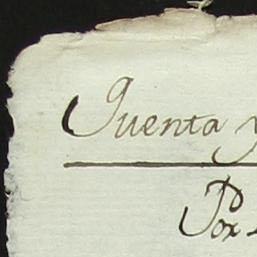 Quenta y
Por